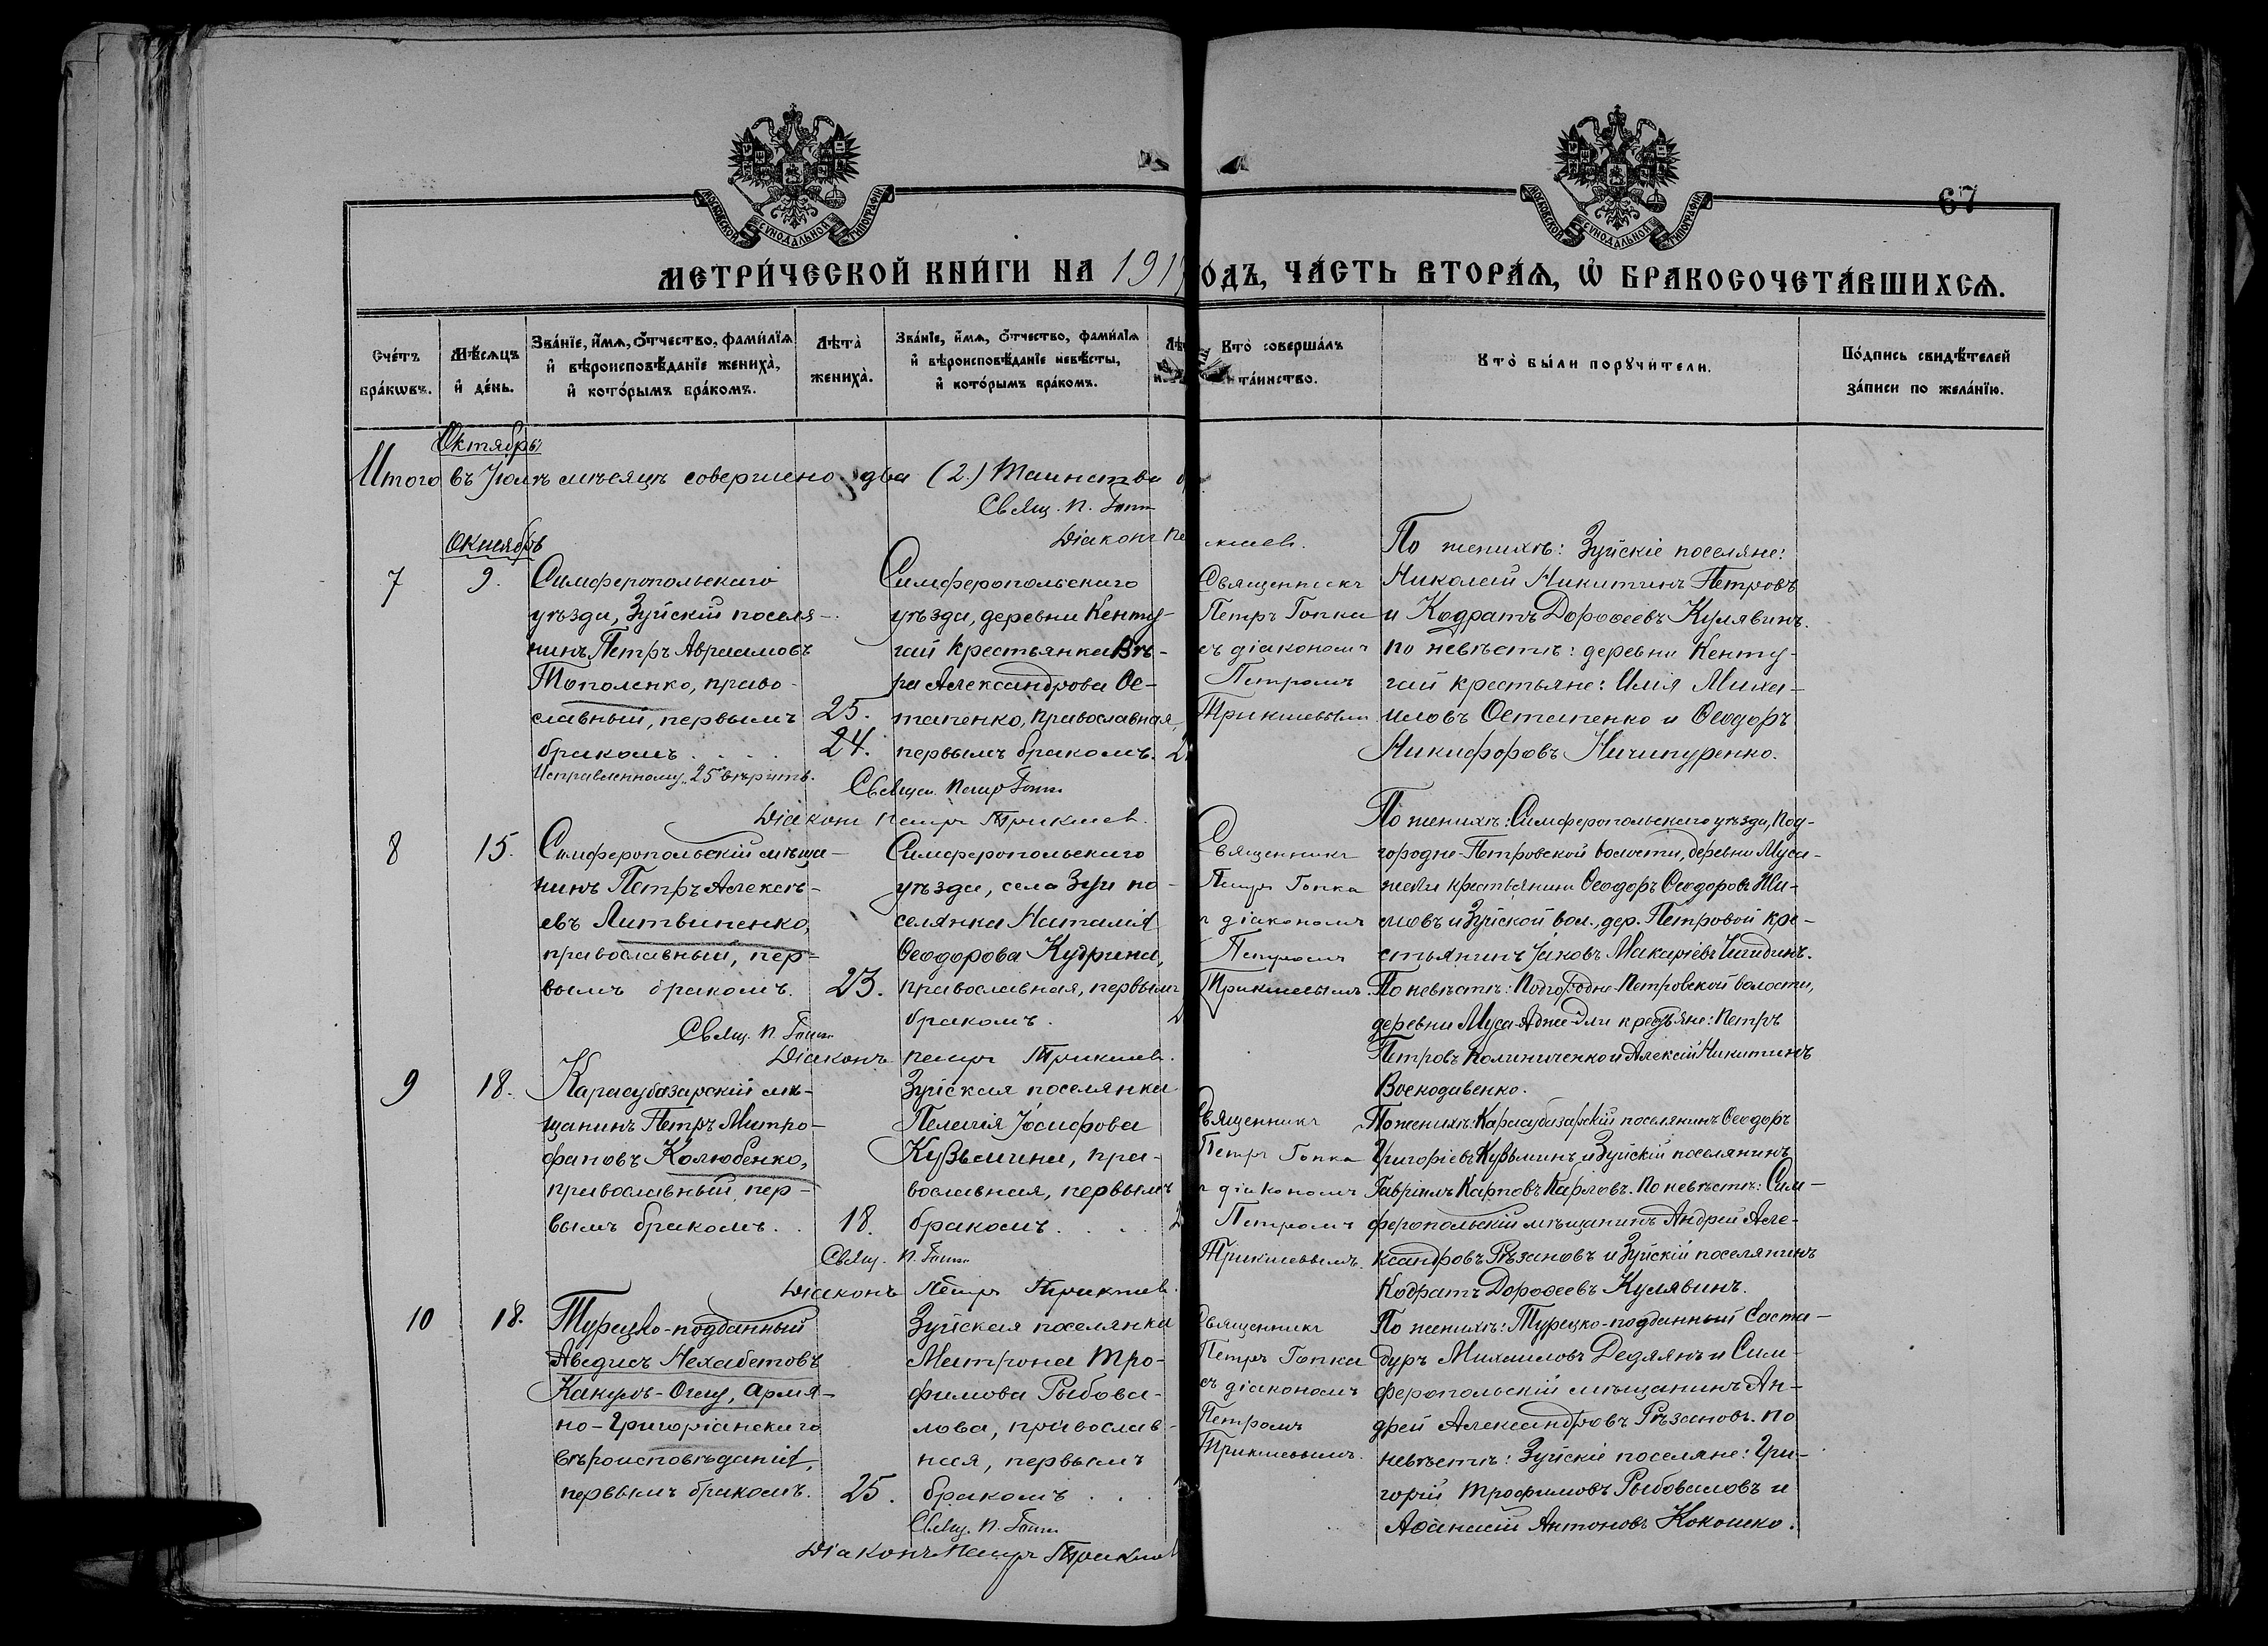 МОСКОВСКОЙ СѴНОДАЛЬНОЙ ТИПОГРАФІИ
МОСКОВСКОЙ СѴНОДАЛЬНОЙ ТИПОГРАФІИ
67
МЕТРИ́ЧЕСКОЙ КНИ́ГИ НА 191
ОДЪ, ЧА́СТЬ ВТОРА́Ѧ, Ѡ҆ БРАКОСОЧЕТА́ВШИХСѦ.
Счéтъ бра́кѡвъ.
Мѣ́сѧцъ и҆ де́нь.
Зва́нїе, и҆́мѧ, ѻ҆́тчество, фами́лїѧ
и҆ вѣроисповѣ́данїе жениха̀,
и҆ кото́рымъ бра́комъ.
Лѣта̀ жениха̀.
Зва́нїе, и҆́мѧ, ѻ҆́тчество, фами́лїѧ
и҆ вѣроисповѣ́данїе невѣ́сты,
и҆ кото́рымъ бра́комъ.
Кто̀ соверша́лъ
та́инство.
Кто̀ бы́ли порꙋчи́тели.
По́дпись свидѣ́телей
за́писи по жела́нїю.
Октябрь
Итого въ Іюлѣ мѣсяцѣ совершено два (2) Таинства
Свящ. П. Гопка
Діаконъ Пе
Октябрь
7
9.
Симферопольскаго
уѣзда, Зуйскій поселя-
нинъ Петръ Авраамовъ
Тополенко, право-
славный, первымъ
бракомъ . . . .
25.
24.
Исправленному "25" вѣрить.
Симферопольскаго
уѣзда, деревни Кенту-
гай крестьянка Вѣ-
ра Александрова Ос-
тапенко, православная,
первымъ бракомъ. 2
Священникъ
Петръ Гопка
съ діакономъ
Петромъ
Трикшевымъ
По женихѣ: Зуйскіе поселяне:
Николай Никитинъ Петровъ
и Кодратъ Дороѳеевъ Кулявинъ.
по невѣстѣ: деревни Кенту-
гай крестьяне: Илія Михаи-
ловъ Остапенко и Ѳеодоръ
Никифоровъ Ничипуренко.
Священ. Петръ Гопка
Діаконъ Петръ Трикшев.
8
15.
Симферопольскій мѣща-
нинъ Петръ Алексѣ-
евъ Литвиненко,
православный, пер-
вымъ бракомъ.
23.
Симферопольскаго
уѣзда, села Зуи по-
селянка Наталія
Ѳеодорова Кудрина,
православная, первымъ
бракомъ. 2
Священникъ
Петръ Гопка
діакономъ
Петромъ
Трикшевымъ.
По женихѣ: Симферопольскаго уѣзда, Под-
городне-Петровской волости, деревни Муса-
крестьянинъ Ѳеодоръ Ѳеодоровъ
и Зуйской вол., дер. Петровой кре-
стьянинъ Іаковъ Макаріевъ
По невѣстѣ: Подгородне-Петровской волости,
деревни Муса-Аджи-Эли крестьяне: Петръ
Петровъ Калиниченко и Алексій Никитинъ
Воскодавенко.
Свящ. П. Гопка
Діаконъ Петръ Трикшев.
9
18.
Карасубазарскій мѣ-
щанинъ Петръ Митро-
фановъ Колюбенко,
православный, пер-
вымъ бракомъ. .
18.
Зуйская поселянка
Пелагія Іосифова
Кузьмина, пра-
вославная, первымъ
бракомъ. . . . 2
Священникъ
Петръ Гопка
діакономъ
Петромъ
Трикшевымъ.
По женихѣ: Карасубазарскій поселянинъ Ѳеодоръ
Григоріевъ Кузьминъ и Зуйскій поселянинъ
Гавріилъ Карповъ Карловъ. По невѣстѣ: Сим-
феропольскій мѣщанинъ Андрей Але-
ксандровъ Рѣзановъ и Зуйскій поселянинъ
Кодратъ Дороѳеевъ Кулявинъ.
Свящ. П. Гопка
Діаконъ Петръ Трикшев.
10
18.
Турецко-подданный
Аведисъ Нехабетовъ
Какумъ-Оглу, армя-
но-григоріанскаго
вѣроисповѣданія,
первымъ бракомъ.
25.
Зуйская поселянка
Матрона Тро-
фимова Рыбова-
лова, православ-
ная, первымъ
бракомъ . . .
Священникъ
Петръ Гопка
съ діакономъ
Петромъ
Трикшевымъ.
По женихѣ: Турецко-подданный Саста-
дуръ Михаиловъ Дедяянъ и Сим-
феропольскій мѣщанинъ Ан-
дрей Александровъ Рѣзановъ. По
невѣстѣ: Зуйскіе поселяне: Гри-
горій Трофимовъ Рыбоваловъ и
Аѳанасій Антоновъ Кокошко.
Свящ. П. Гопка
Діаконъ Петръ Трикшев